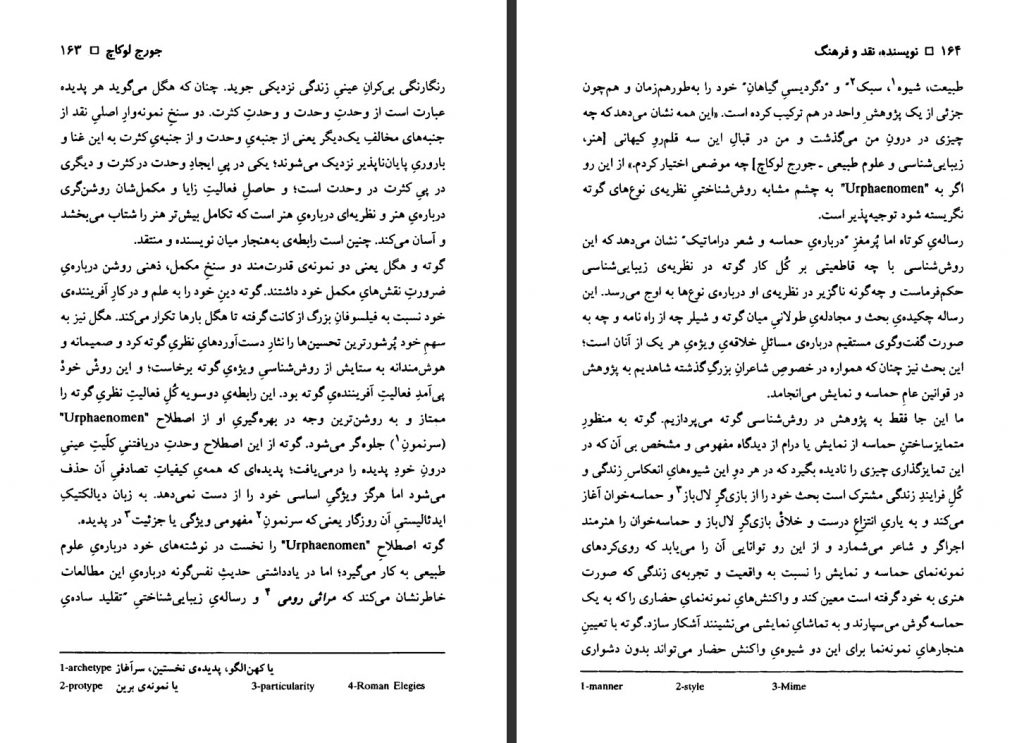 جورج لوکاچ □ ۱۶۳
رنگارنگی بی‌کرانِ عینیِ زندگی نزدیکی جوید. چنان که هگل می‌گوید هر پدیده
عبارت است از وحدتِ وحدت و وحدتِ کثرت. دو سنخِ نمونه‌وارِ اصلیِ نقد از
جنبه‌های مخالفِ یک‌دیگر یعنی از جنبه‌یِ وحدت و از جنبه‌یِ کثرت به این غنا و
باروریِ پایان‌ناپذیر نزدیک می‌شوند؛ یکی در پیِ ایجادِ وحدت در کثرت و دیگری
در پیِ کثرت در وحدت است؛ و حاصلِ فعالیتِ زایا و مکمل‌شان روشن‌گری
درباره‌یِ هنر و نظریه‌ای درباره‌یِ هنر است که تکامل بیش‌تر هنر را شتاب می‌بخشد
و آسان می‌کند. چنین است رابطه‌یِ به‌هنجار میان نویسنده و منتقد.
گوته و هگل یعنی دو نمونه‌ی قدرت‌مند دو سنخِ مکمل، ذهنی روشن درباره‌یِ
ضرورتِ نقش‌هایِ مکمل خود داشتند. گوته دینِ خود را به علم و در کارِ آفریننده‌ی
خود نسبت به فیلسوفانِ بزرگ از کانت گرفته تا هگل بارها تکرار می‌کند. هگل نیز به
سهمِ خود پُرشورترین تحسین‌ها را نثارِ دست‌آوردهایِ نظریِ گوته کرد و صمیمانه و
هوش‌مندانه به ستایش از روش‌شناسیِ ویژه‌یِ گوته برخاست؛ و این روشْ خودْ
پی‌آمدِ فعالیتِ آفریننده‌یِ گوته بود. این رابطه‌یِ دوسویه کُلِ فعالیتِ نظریِ گوته را
ممتاز و به روشن‌ترین وجه در بهره‌گیریِ او از اصطلاح "Urphaenomen"
(سرنمون۱) جلوه‌گر می‌شود. گوته از این اصطلاح وحدتِ دریافتنیِ کلّیتِ عینیِ
درونِ خودِ پدیده را درمی‌یافت؛ پدیده‌ای که همه‌یِ کیفیاتِ تصادفیِ آن حذف
می‌شود اما هرگز ویژگیِ اساسی خود را از دست نمی‌دهد. به زبان دیالکتیکِ
ایدئالیستیِ آن روزگار یعنی که سرنمونِ۲ مفهومی ویژگی یا جزئیت۳ در پدیده.
گوته اصطلاحِ "Urphaenomen" را نخست در نوشته‌های خود درباره‌یِ علوم
طبیعی به کار می‌گیرد؛ اما در یادداشتی حدیثِ نفس‌گونه درباره‌یِ این مطالعات
خاطرنشان می‌کند که مراثی رومی ۴ و رساله‌ی زیبایی‌شناختیِ "تقلید ساده‌یِ
1-archetype یا کهن‌الگو، پدیده‌ی نخستین، سرآغاز
2-protype یا نمونه‌ی برین 3-particularity 4-Roman Elegies
۱۶۴ □ نویسنده، نقد و فرهنگ
طبیعت، شیوه۱، سبک۲" و "دگردیسیِ گیاهانِ" خود را به‌طورهم‌زمان و هم‌چون
جزئی از یک پژوهشِ واحد در هم ترکیب کرده است. «این همه نشان می‌دهد که چه
چیزی در درونِ من می‌گذشت و من در قبالِ این سه قلم‌روِ کیهانی [هنر،
زیبایی‌شناسی و علوم طبیعی ـ جورج لوکاچ] چه موضعی اختیار کردم.» از این رو
اگر به "Urphaenomen" به چشم مشابه روش‌شناختیِ نظریه‌ی نوع‌های گوته
نگریسته شود توجیه‌پذیر است.
رساله‌ی کوتاه اما پُرمغزِ "درباره‌یِ حماسه و شعر دراماتیک" نشان می‌دهد که این
روش‌شناسی با چه قاطعیتی بر کُل کار گوته در نظریه‌ی زیبایی‌شناسی
حکم‌فرماست و چه‌گونه ناگزیر در نظریه‌ی او درباره‌یِ نوع‌ها به اوج می‌رسد. این
رساله چکیده‌یِ بحث و مجادله‌یِ طولانیِ میان گوته و شیلر چه از راه نامه و چه به
صورت گفت‌وگوی مستقیم درباره‌یِ مسائلِ خلاقه‌یِ ویژه‌یِ هر یک از آنان است؛
این بحث نیز چنان‌که همواره در خصوصِ شاعران بزرگِ گذشته شاهدیم به پژوهش
در قوانین عامِ حماسه و نمایش می‌انجامد.
ما این جا فقط به پژوهش در روش‌شناسی گوته می‌پردازیم. گوته به منظورِ
متمایزساختنِ حماسه از نمایش یا درام از دیدگاه مفهومی و مشخص بی آن که در
این تمایزگذاری چیزی را نادیده بگیرد که در هر دوِ این شیوه‌هایِ انعکاسِ زندگی و
کُلِ فرایندِ زندگی مشترک است بحث خود را از بازی‌گرِ لال‌باز۳ و حماسه‌خوان آغاز
می‌کند و به یاریِ انتزاعِ درست و خلاقْ بازی‌گرِ لال‌باز و حماسه‌خوان را هنرمند
اجراگر و شاعر می‌شمارد و از این رو توانایی آن را می‌یابد که روی‌کردهای
نمونه‌نمای حماسه و نمایش را نسبت به واقعیت و تجربه‌یِ زندگی که صورت
هنری به خود گرفته است معین کند و واکنش‌هایِ نمونه‌نمای حضاری را که به یک
حماسه گوش می‌سپارند و به تماشایِ نمایشی می‌نشینند آشکار سازد. گوته با تعیینِ
هنجارهایِ نمونه‌نما برای این دو شیوه‌یِ واکنش حضار می‌تواند بدون دشواری
1-manner 2-style 3-Mime